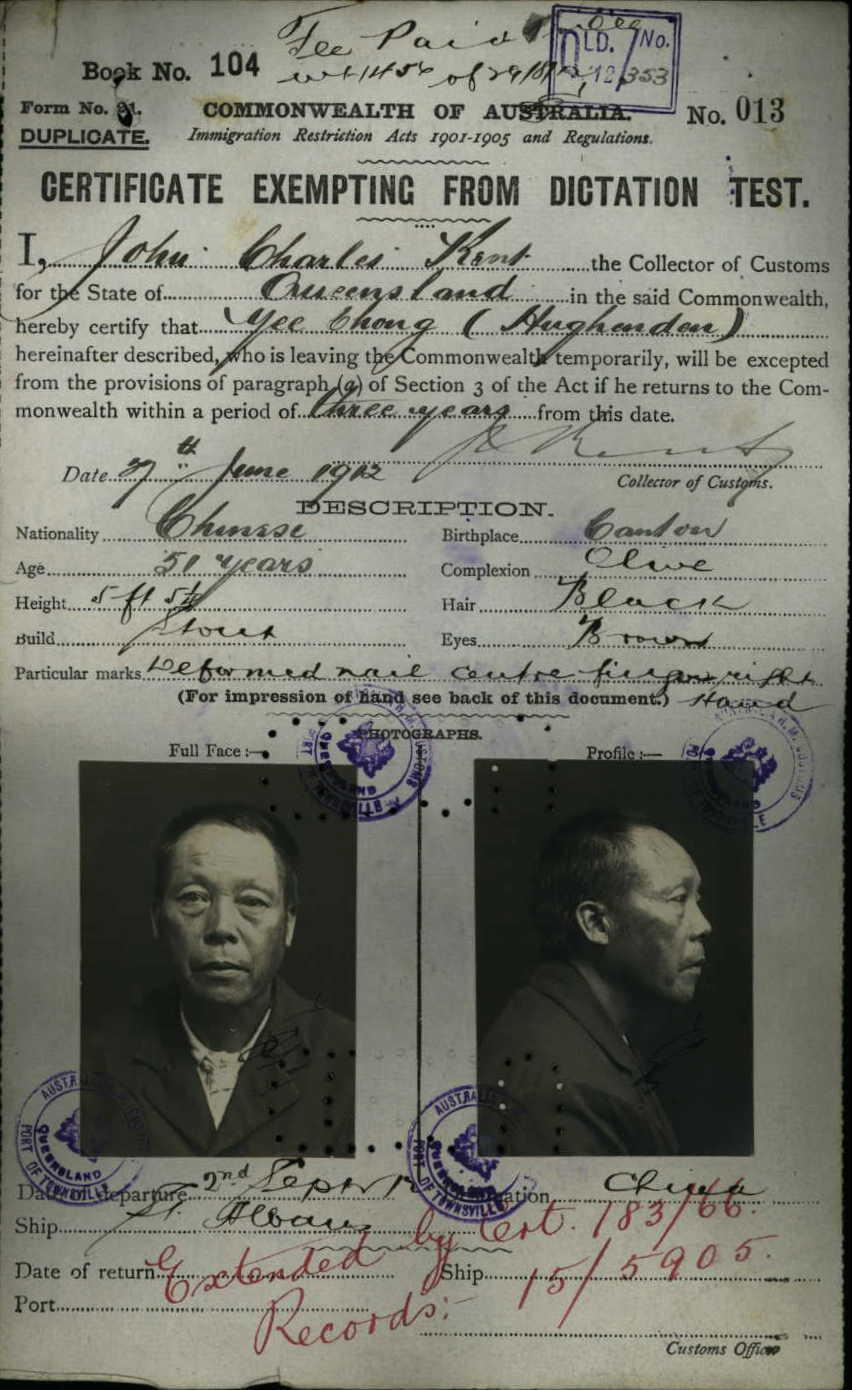 Fee Paid
Book No. 104
of
QLD. No.
12/353
Form No. 21.
COMMONWEALTH OF AUSTRALIA.
No. 013
DUPLICATE.
Immigration Restriction Acts 1901-1905 and Regulations.
CERTIFICATE EXEMPTING FROM DICTATION TEST.
I, John Charles Kent the Collector of Customs
for the State of Queensland in the said Commonwealth,
hereby certify that Yee Chong (Hughenden)
hereinafter described, who is leaving the Commonwealth temporarily, will be excepted
from the provisions of paragraph (a) of Section 3 of the Act if he returns to the Com-
monwealth within a period of three years from this date.
Date 27th June 1912
Collector of Customs.
DESCRIPTION.
Nationality Chinese Birthplace Canton
Age 51 years Complexion Olive
Height 5 ft 5½ Hair Black
Build Stout Eyes Brown
Particular marks Deformed nail centre finger right
(For impression of hand see back of this document.) Hand
PHOTOGRAPHS.
Full Face :— Profile :—
QUEENSLAND
PORT OF TOWNSVILLE
Date of departure 2nd Septr 12 Destination China
Ship St. Albans
Extended by Cert. 183/66.
Date of return Ship 15/5905.
Port
Records:-
Customs Officer